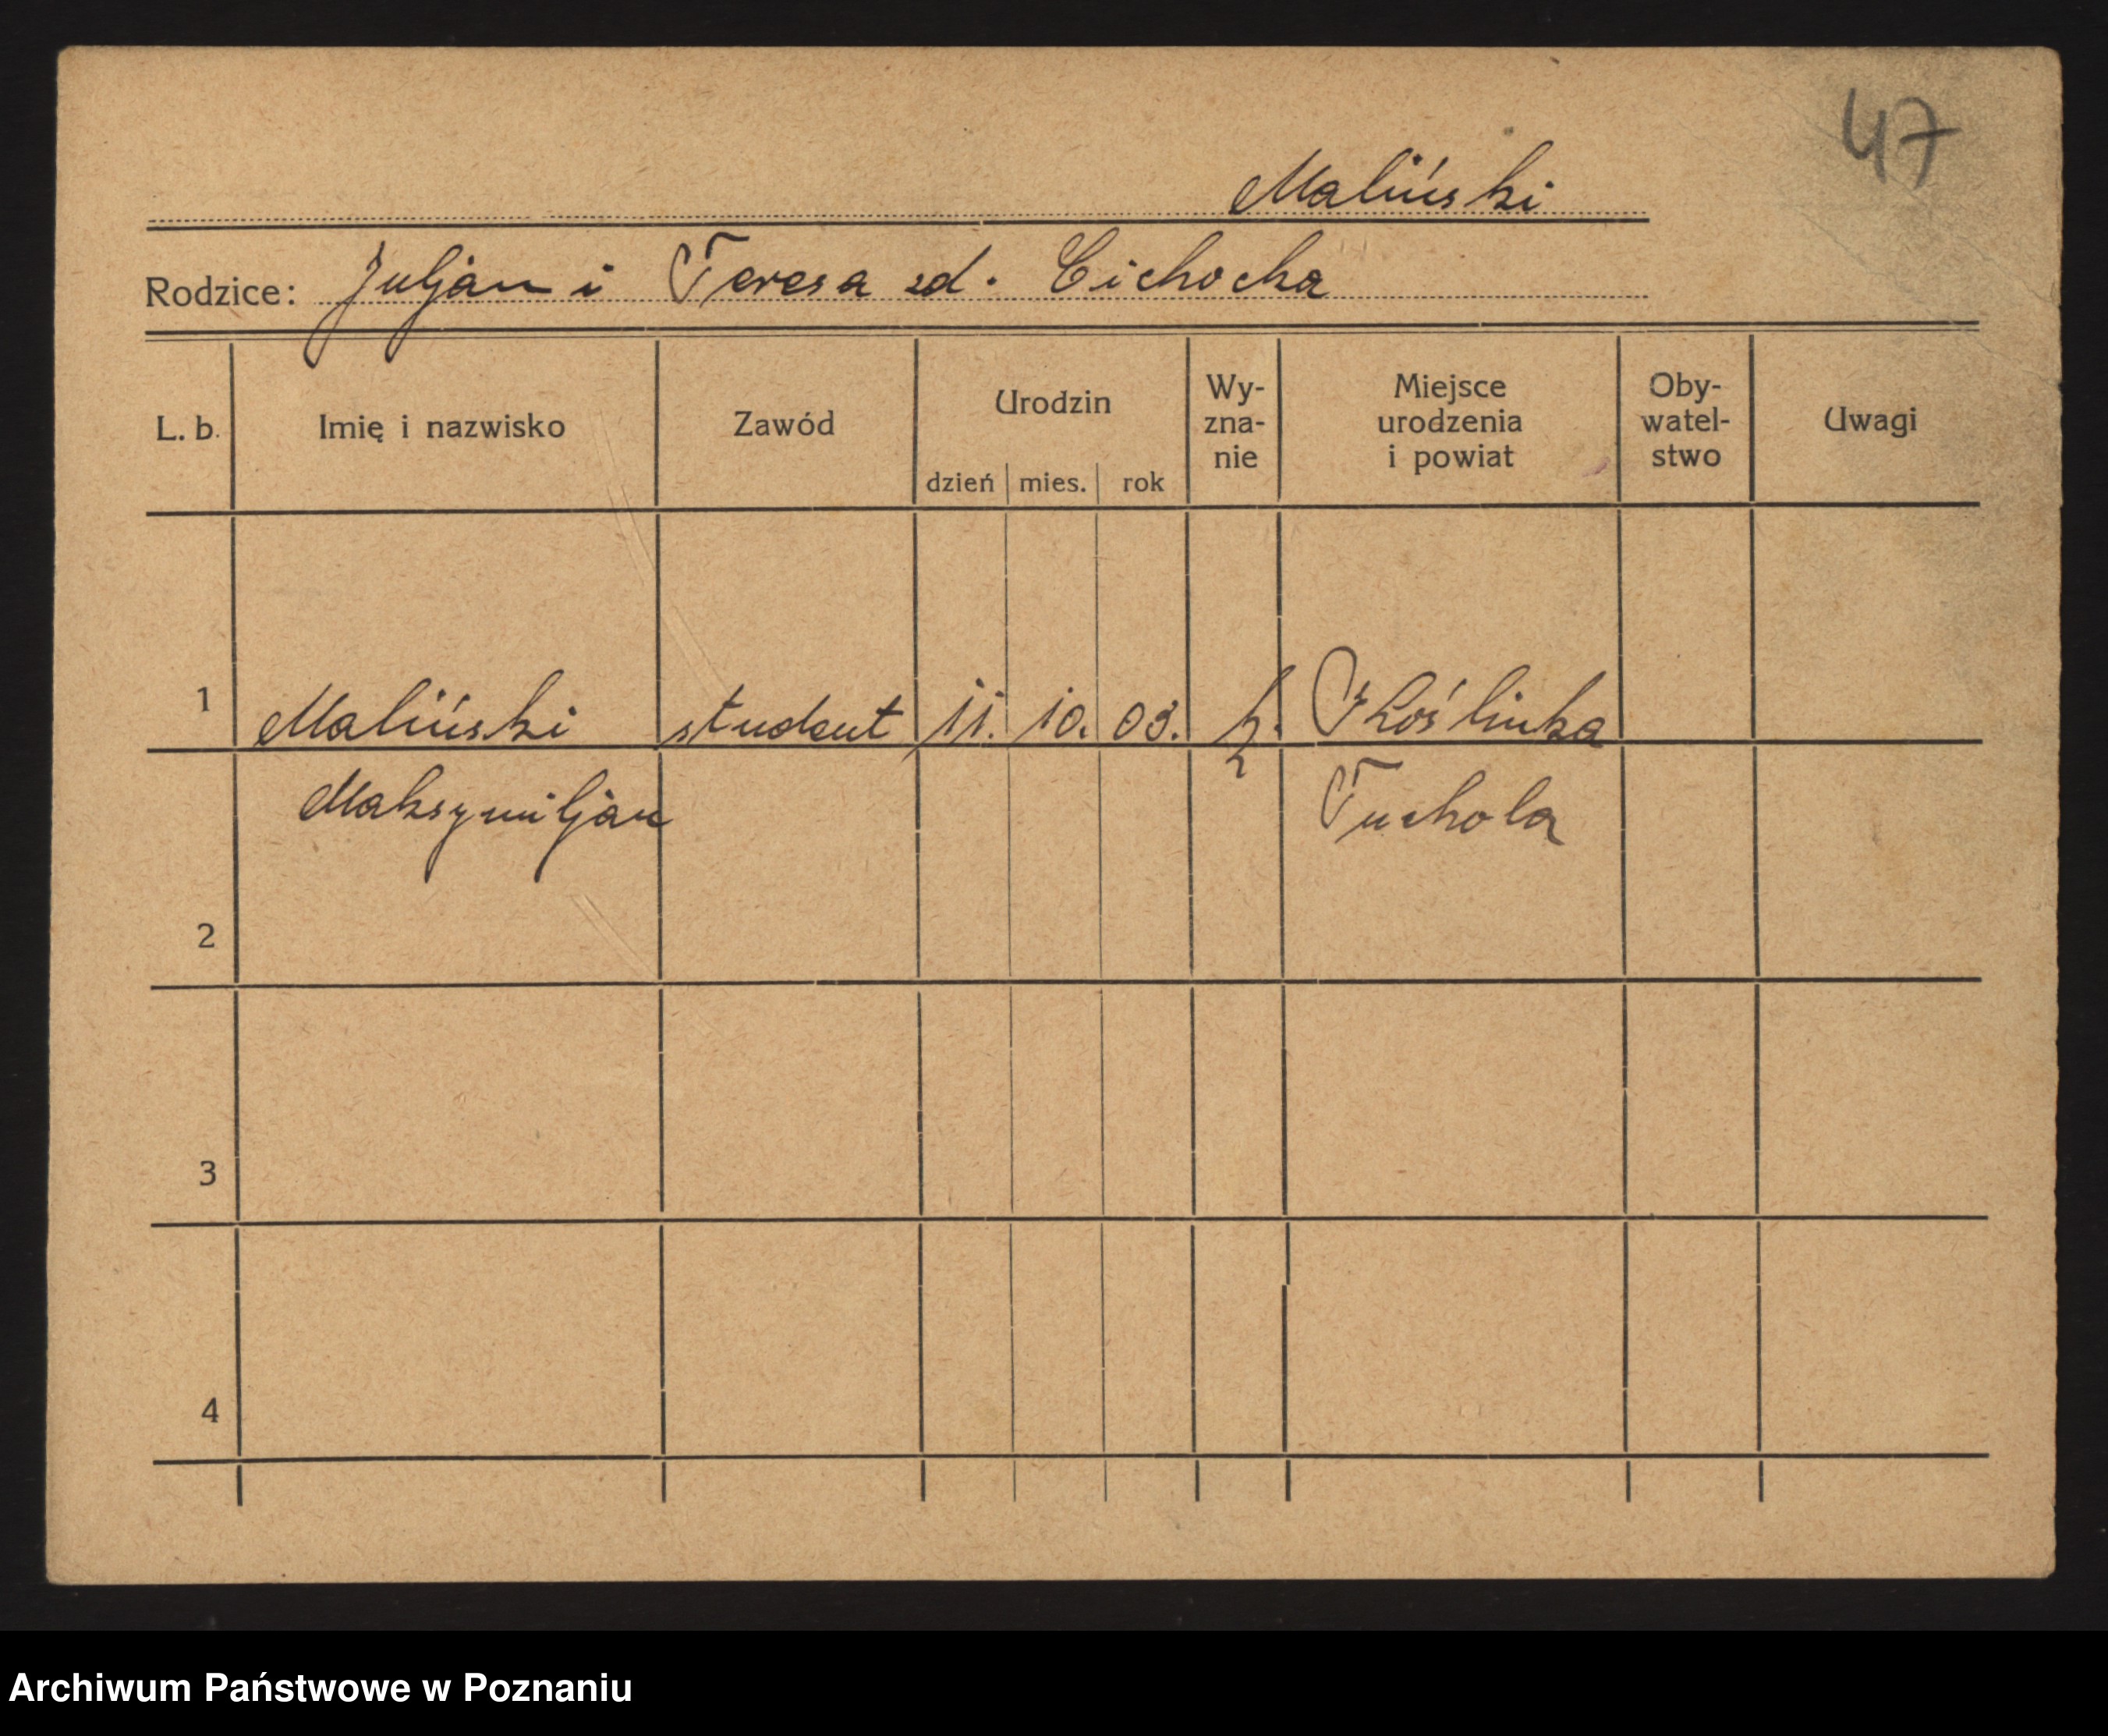 47
Maliński
Rodzice: Juljan i Teresa zd. Cichocka
L. b. Imię i nazwisko Zawód Urodzin Wy-znanie Miejsce urodzenia i powiat Oby-watel-stwo Uwagi
dzień mies. rok
1 Maliński student 11. 10. 03. k. Koślinka
Maksymiljan Tuchola
2
3
4
Archiwum Państwowe w Poznaniu